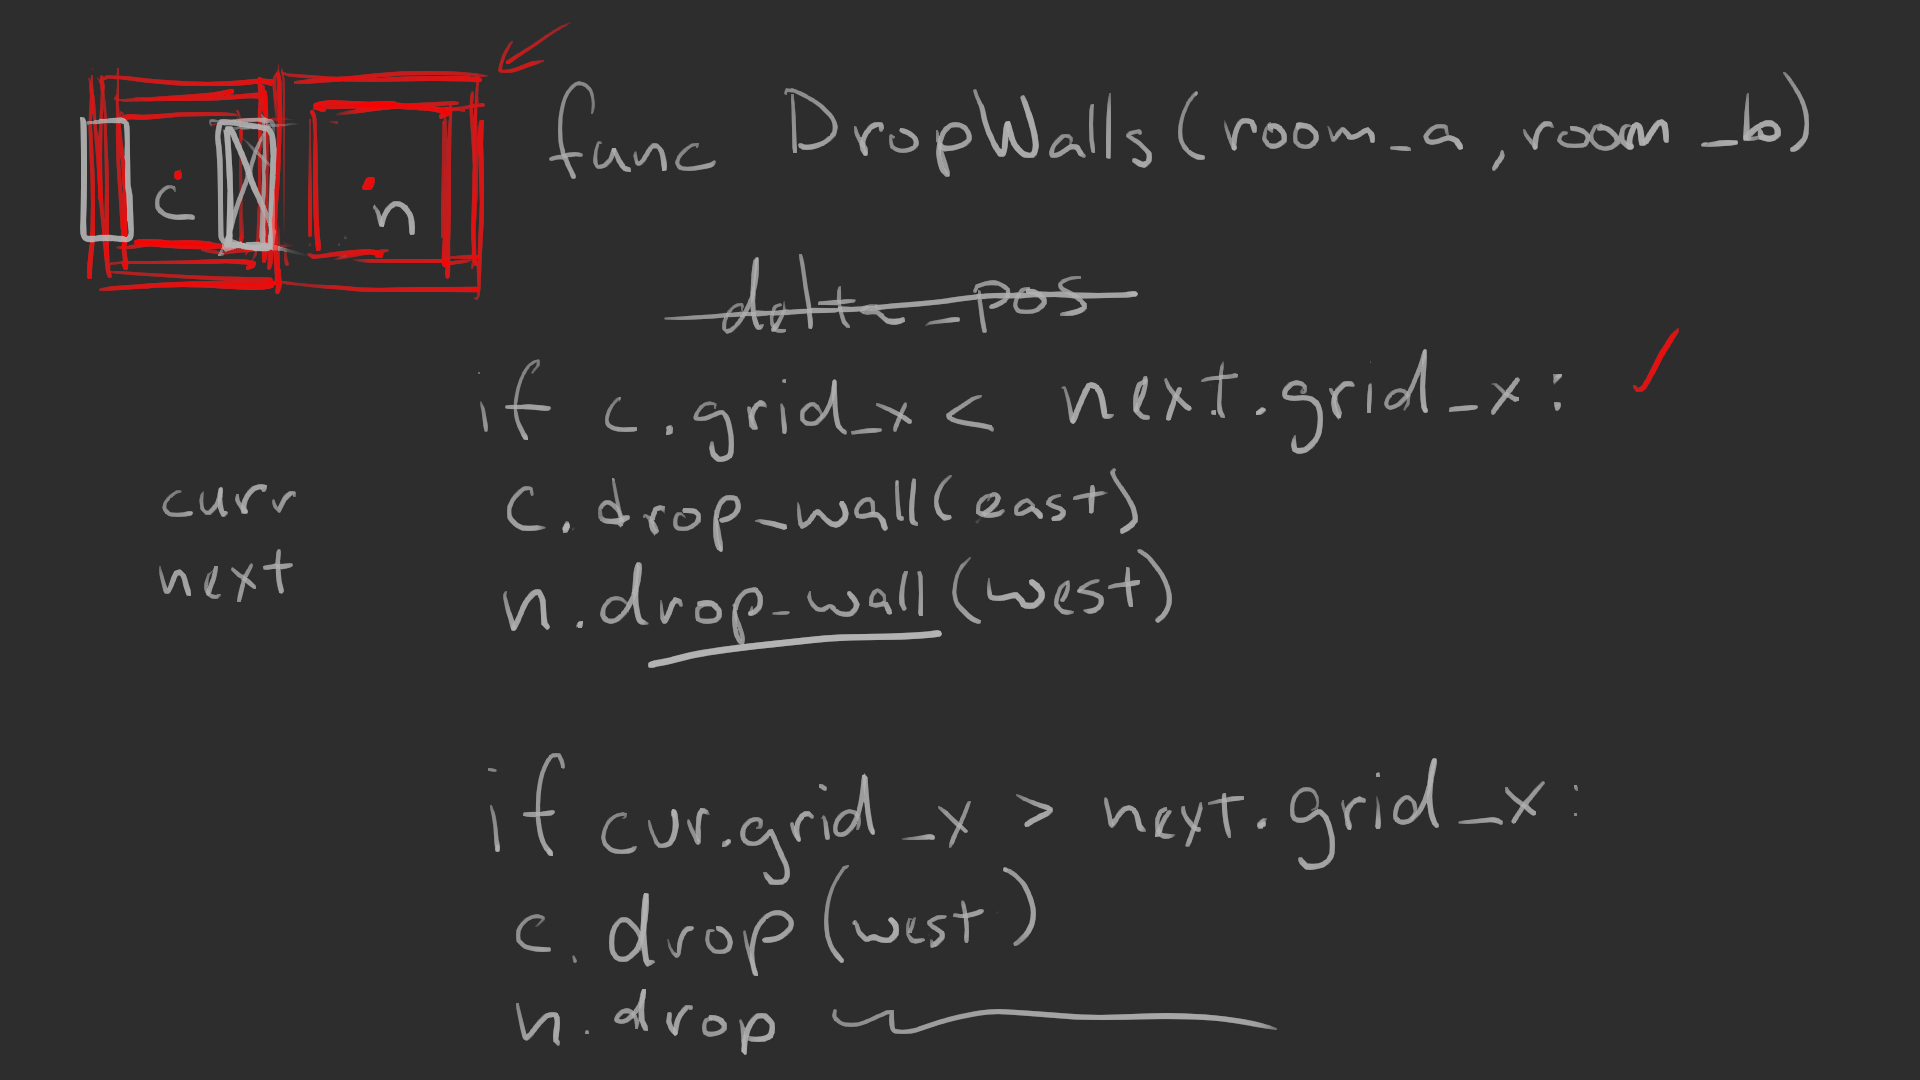 func DropWalls(room_a, room_b)
c n
delta_pos
if c.grid_x < next.grid_x:
curr
c.drop_wall(east)
next
n.drop_wall(west)
if cur.grid_x > next.grid_x:
c.drop(west)
n.drop